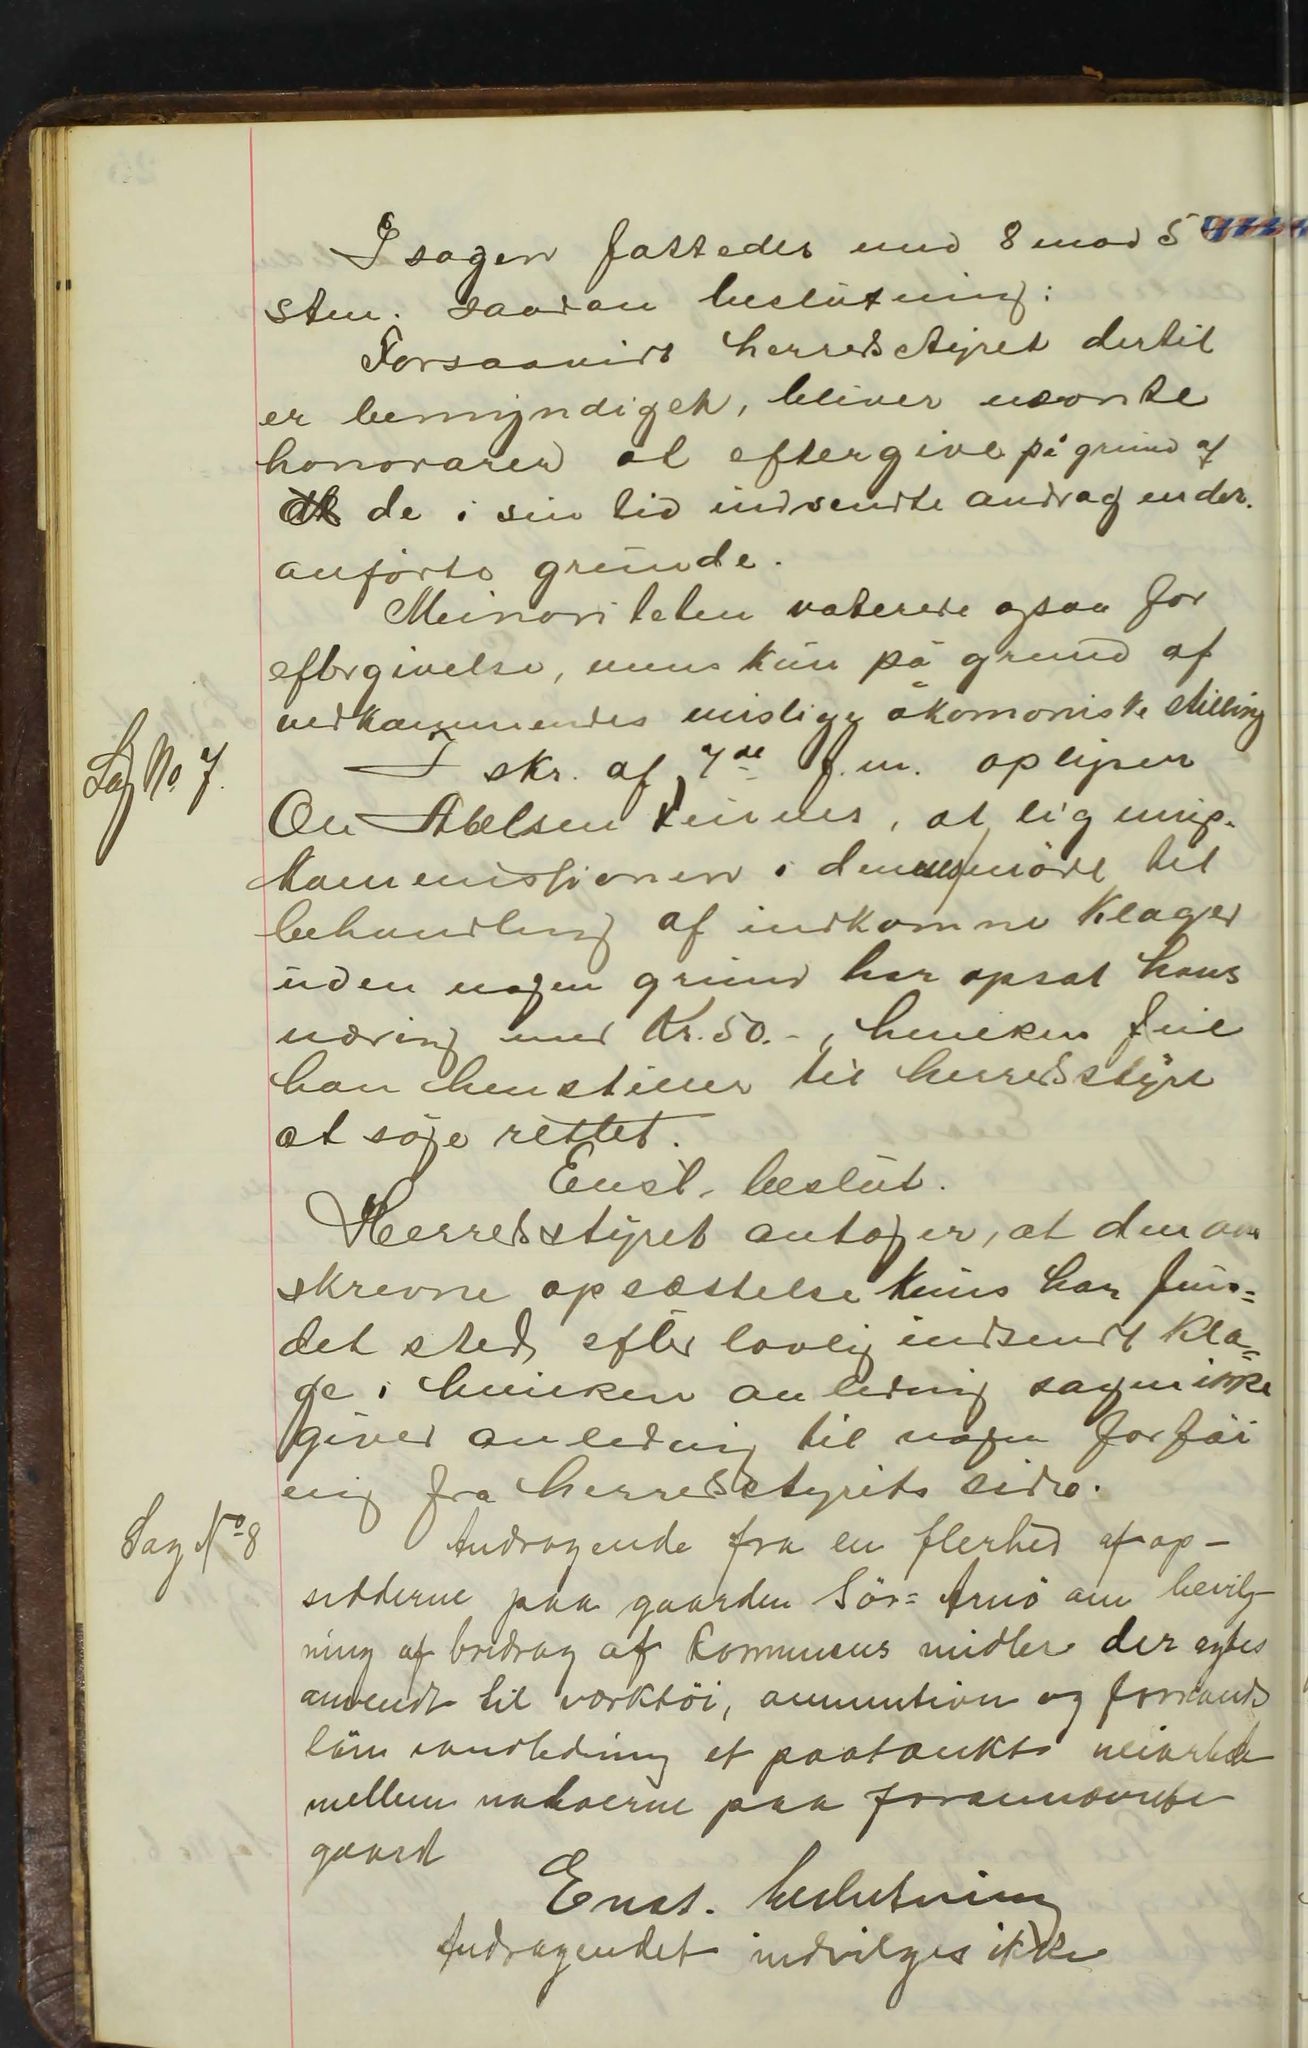 I sagen fattedes med 8 mod 5
stem. saadan beslutning:
Forsaavidt herredsstyret dertil
er bemyndiget, bliver nævnte
honorarer at eftergive på grund af
de i sin tid indsendte andragender
anførte grunde.
Minoriteten voterede ogsaa for
eftergivelse, men kun på grund af
vedkommendes mislige økonomiske stilling
Sag No 7.
I skr. af 7de f.m. oplyser
Ole Abelsen, at lignings-
kommissionen i dennes møde til
behandling af indkomne klager
uden nogen grund har opsat hans
næring med Kr. 50.-, hvilken feil
han henstiller til herredsstyre
at søge rettet.
Enst. beslut.
Herredsstyret antager, at den om
skrevne opsættelse kuns har fun=
det sted efter lovlig indsendt kla=
ge i hvilken anledning sagen ikke
giver anledning til nogen forføi
ning fra herredsstyrets side.
Sag No 8
Andragende fra en flerhed af op-
sidderne paa gaarden Sør= Arnö om bevilg
ning af bidrag af kommunens midler der agtes
anvendt til værktøi, ammunition og
anledning et paatænkt veiarbeide
mellem naboerne paa forannævnte
gaard
Enst. beslutning
Andragendet indvilges ikke